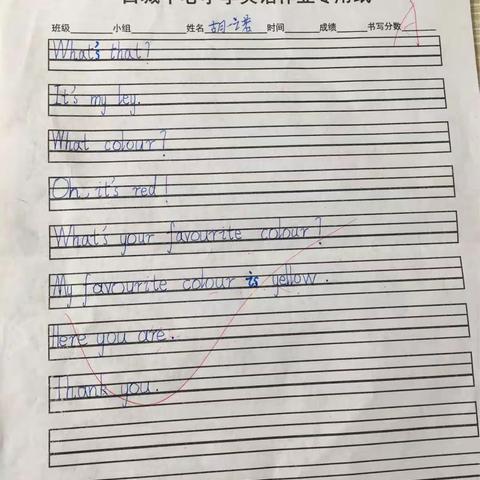 班级 小组 姓名 胡一诺 时间 成绩 书写分数 A
What's that?
It's my key.
What colour?
Oh, it's red!
What's your favourite colour?
My favourite colour is yellow.
Here you are.
Thank you.